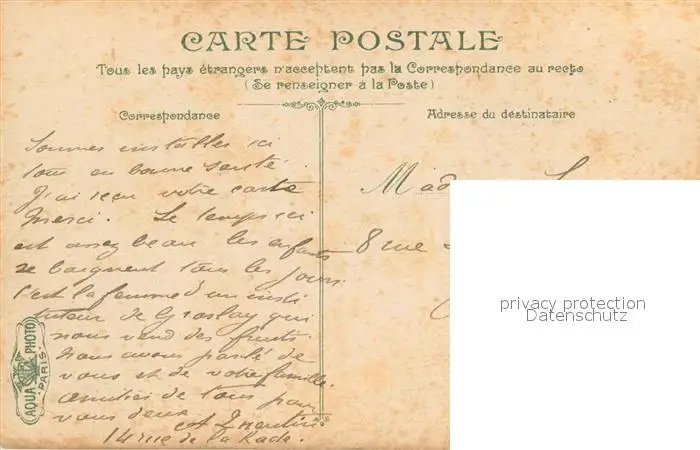 CARTE POSTALE
Tous les pays étrangers n'acceptent pas la Correspondance au recto
(Se renseigner à la Poste)
Correspondance
Adresse du destinataire
Sommes installés ici
tous en bonne santé.
J'ai reçu votre carte
Merci. Le temps ici
est assez beau les enfants
se baignent tous les jours.
C'est la femme d'un insti
tuteur de Groslay qui
nous vend des fruits.
Nous avons parlé de
vous et de votre famille.
amitiés de tous pour
vous deux
14 rue de la Rade.
Mad
8 rue
AQUA PHOTO
PARIS
privacy protection
Datenschutz